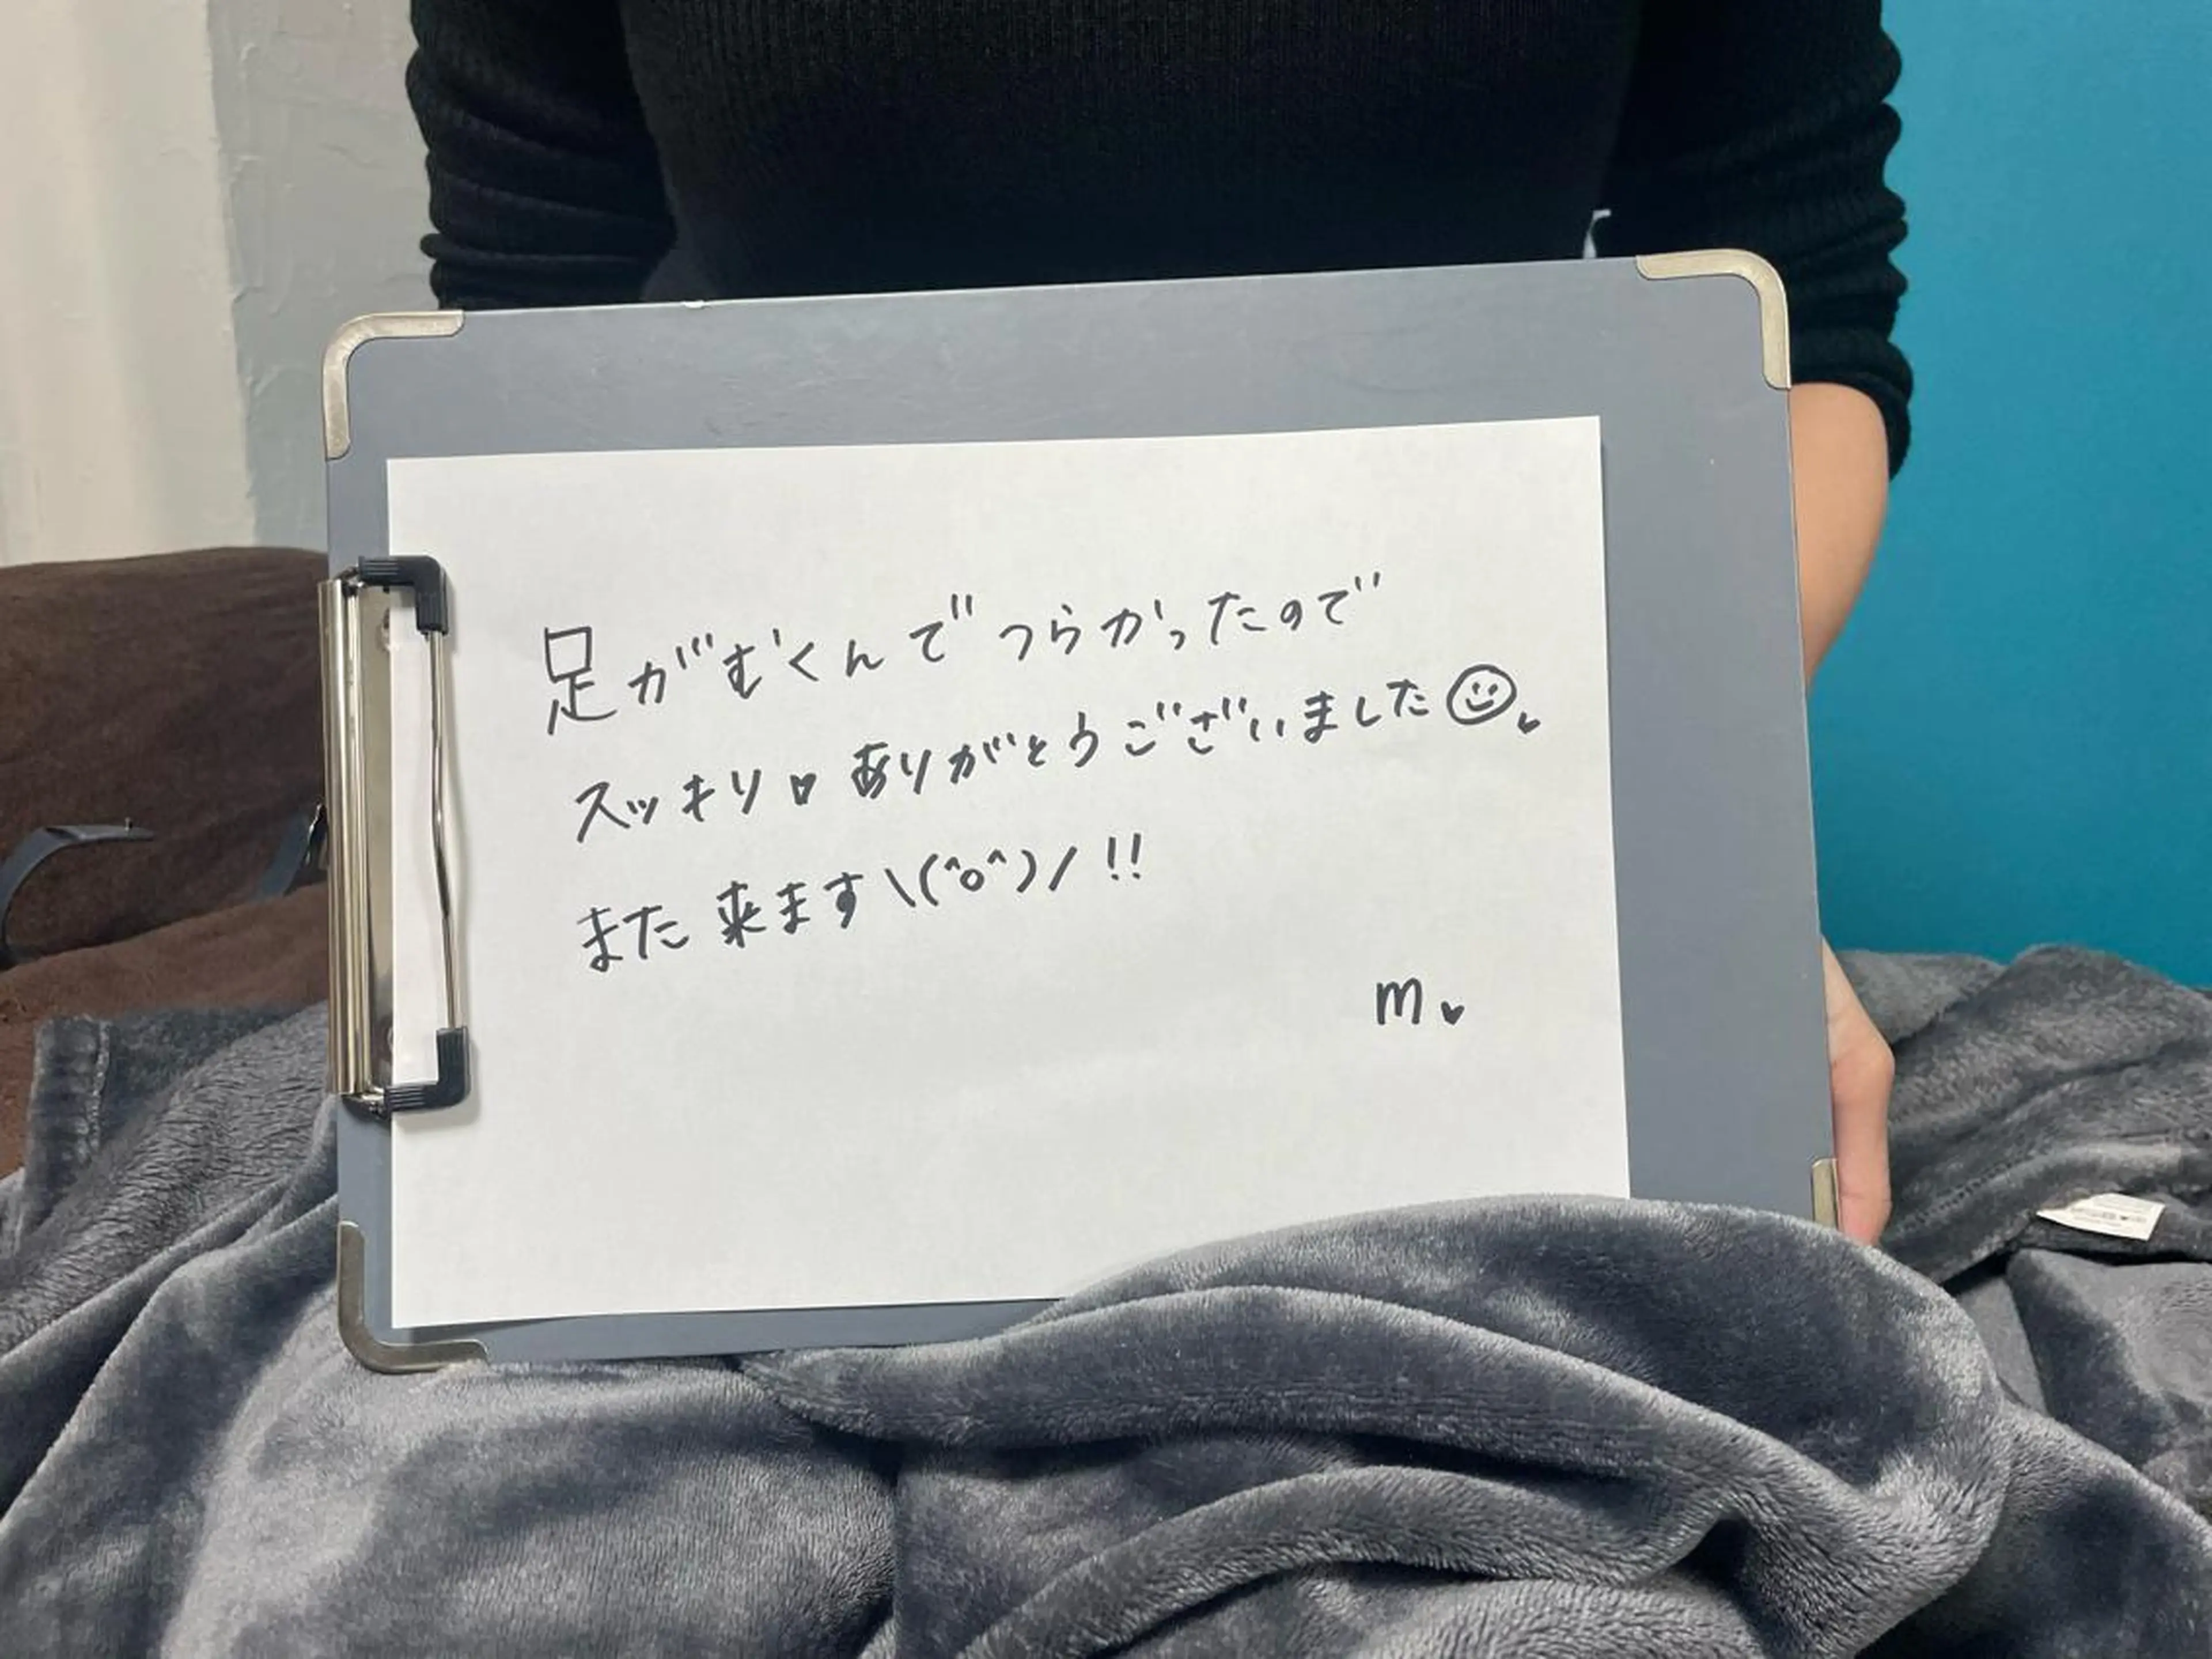 足がむくんでつらかったので
スッキリ♥ ありがとうございました☺♥
また来ます\(^o^)/ !!
m♥